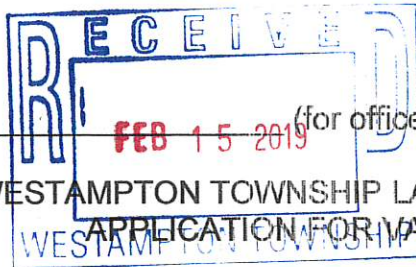 RECEIVED
FEB 15 2019
(for office
WESTAMPTON TOWNSHIP LA
APPLICATION FOR VA
WESTAMPTON TOWNSHIP